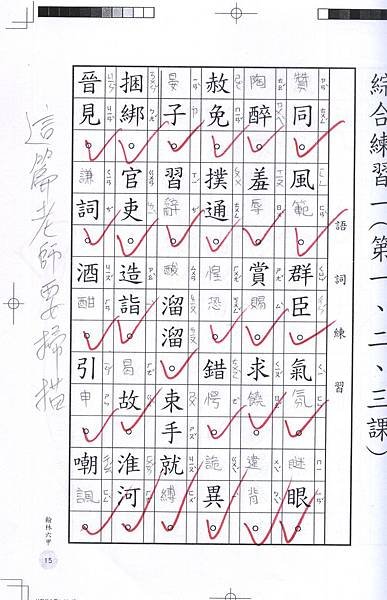 綜合練習一(第一、二、三課)
語詞練習
贊同。風範。群臣。氣氛。瞇眼。
陶醉。羞辱。賞賜。求饒。違背。
赦免。撲通。惶恐。錯愕。詭異。
晏子。習辭。酸溜溜。束手就縛。
捆綁。官吏。造詣。故。淮河。
晉見。謙詞。酒酣。引申。嘲諷。
這篇老師要掃描
翰林六甲
15